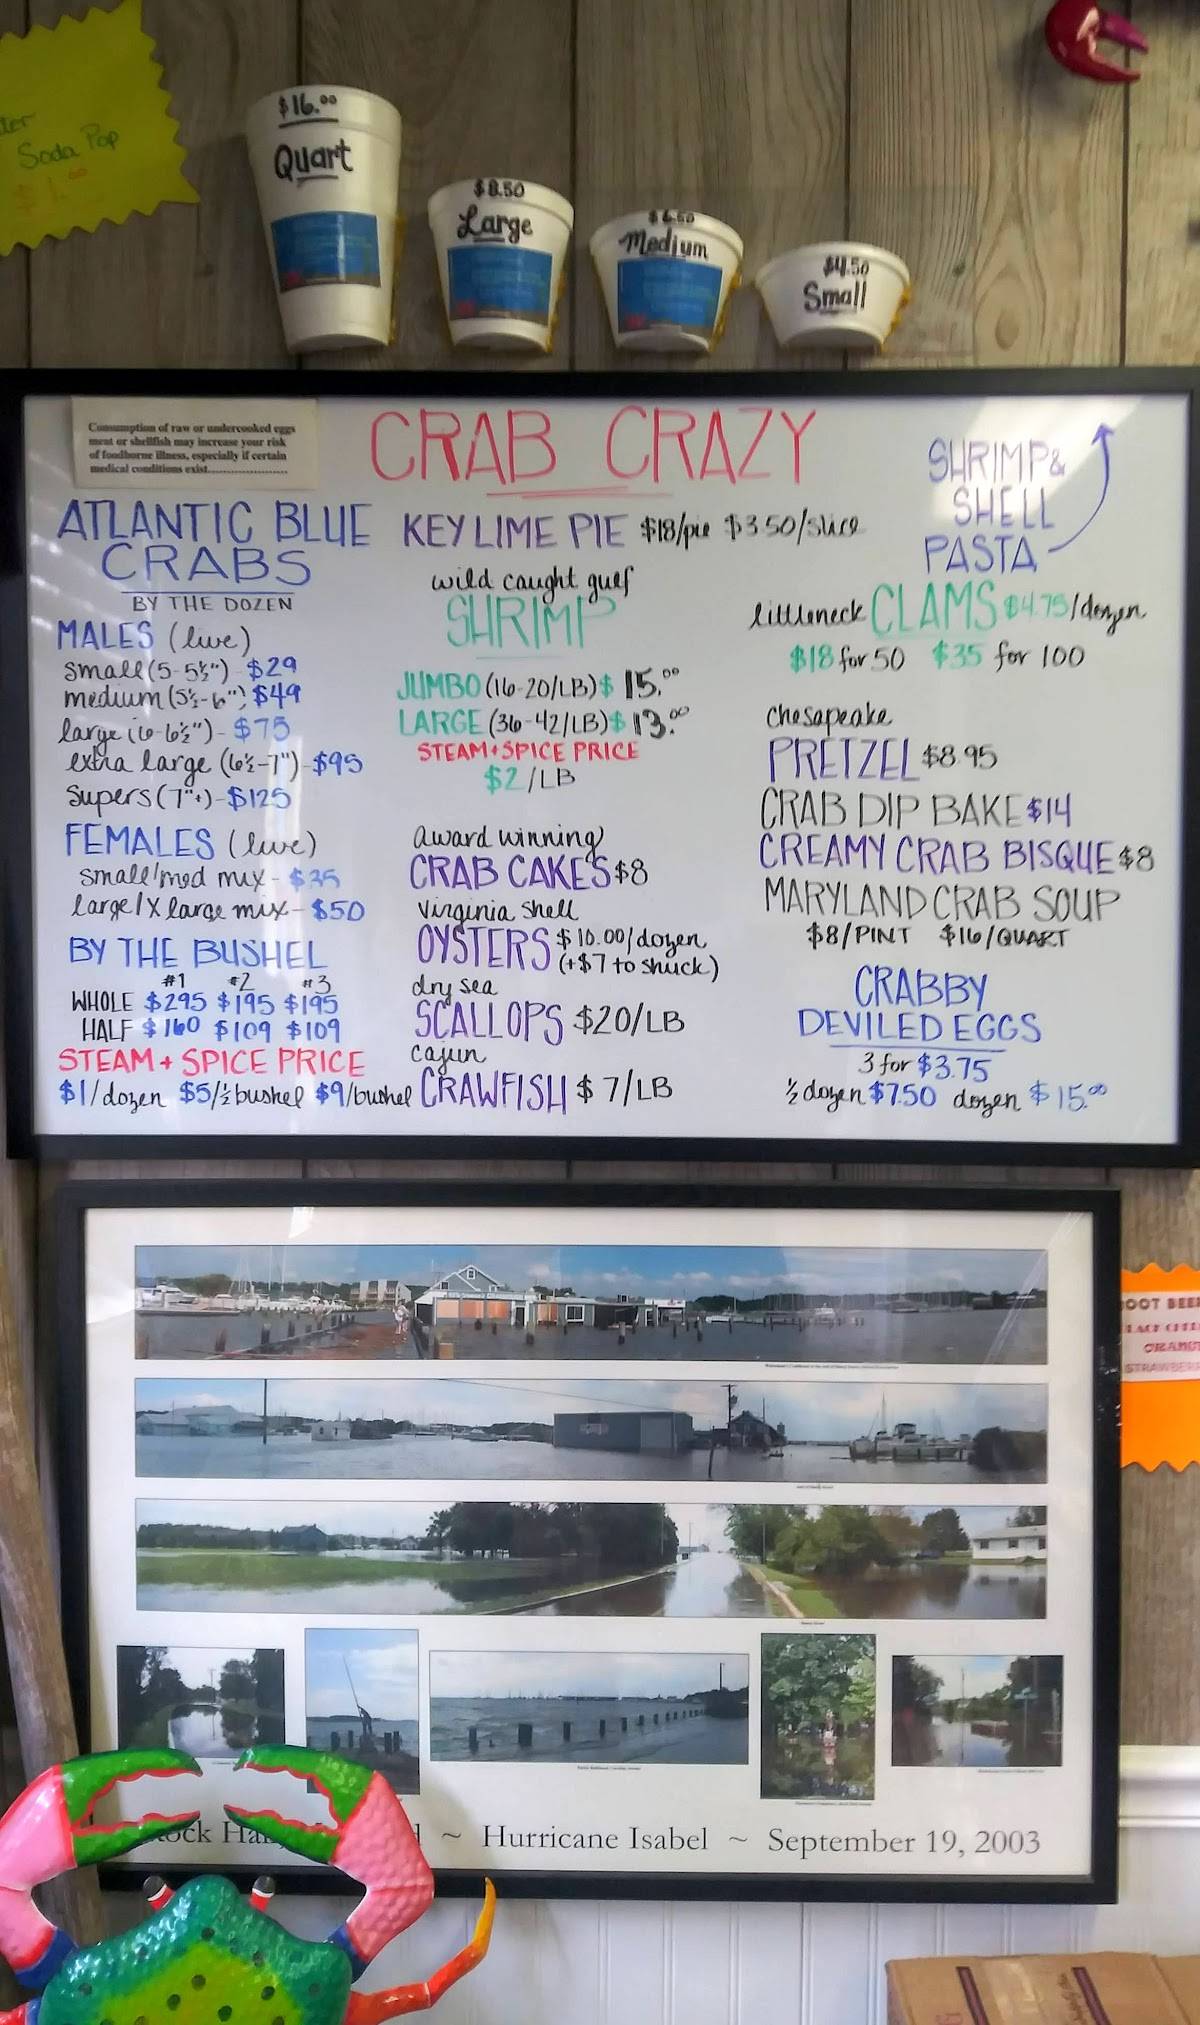 Soda Pop
$16.00
Quart
$8.50
Large
$6.50
Medium
$4.50
Small
Consumption of raw or undercooked eggs
meat or shellfish may increase your risk
of foodborne illness, especially if certain
medical conditions exist......................
CRAB CRAZY
ATLANTIC BLUE
CRABS
BY THE DOZEN
MALES (live)
small (5-5½") - $29
medium (5½-6") $49
large (6-6½") - $75
extra large (6½-7") - $95
supers (7"+) - $125
FEMALES (live)
small/med mix - $35
large/x large mix - $50
BY THE BUSHEL
#1 #2 #3
WHOLE $295 $195 $195
HALF $160 $109 $109
STEAM + SPICE PRICE
$1/dozen $5/½bushel $9/bushel
KEY LIME PIE $18/pie $3.50/slice
wild caught gulf
SHRIMP
JUMBO (16-20/LB) $15.00
LARGE (36-42/LB) $13.00
STEAM + SPICE PRICE
$2/LB
award winning
CRAB CAKES $8
virginia shell
OYSTERS $10.00/dozen
(+$7 to shuck)
dry sea
SCALLOPS $20/LB
cajun
CRAWFISH $7/LB
SHRIMP &
SHELL
PASTA
littleneck CLAMS $4.75/dozen
$18 for 50 $35 for 100
chesapeake
PRETZEL $8.95
CRAB DIP BAKE $14
CREAMY CRAB BISQUE $8
MARYLAND CRAB SOUP
$8/PINT $16/QUART
CRABBY
DEVILED EGGS
3 for $3.75
½ dozen $7.50 dozen $15.00
OOT BEE
STRAWBER
ock Ha ~ Hurricane Isabel ~ September 19, 2003